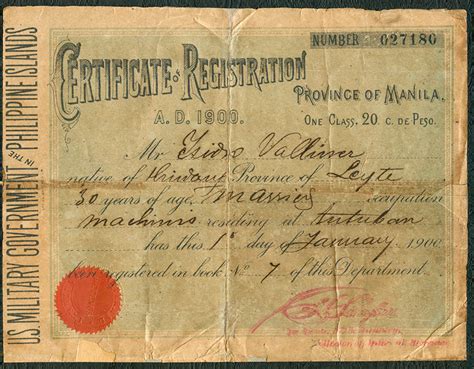 U.S. MILITARY GOVERNMENT IN THE PHILIPPINE ISLANDS
NUMBER 027180
CERTIFICATE OF REGISTRATION
A. D. 1900.
PROVINCE OF MANILA.
ONE CLASS, 20 C. DE PESO.
Mr Isidro
native of Province of Leyte
30 years of age, occupation
residing at
has this 1st day of January 1900
been registered in book No 7 of this Department.